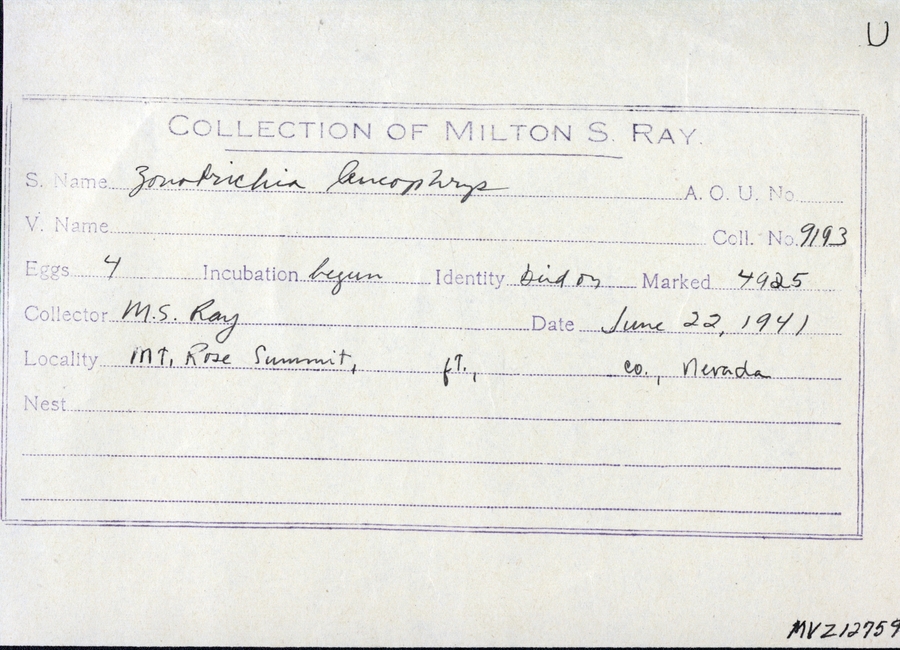 U
COLLECTION OF MILTON S. RAY.
S. Name Zonotrichia leucophrys A. O. U. No.
V. Name Coll. No. 9193
Eggs 4 Incubation begun Identity bird on Marked 4925
Collector M.S. Ray Date June 22, 1941
Locality Mt. Rose Summit, ft., co., Nevada
Nest
MVZ12759